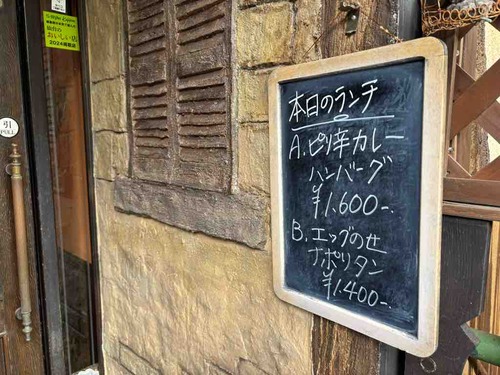 おいしい店
2024掲載店
引
PULL
本日のランチ
A. ピリ辛カレー
ハンバーグ
¥1,600-.
B. エッグのせ
ナポリタン
¥1,400-.